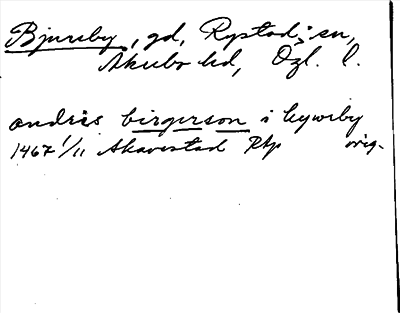 Bjureby, gd, Rystads sn,
Akerbo hd, Ögl. l.
andris birgerson i bywrby
1467 1/11 Skavestad Rtp orig.